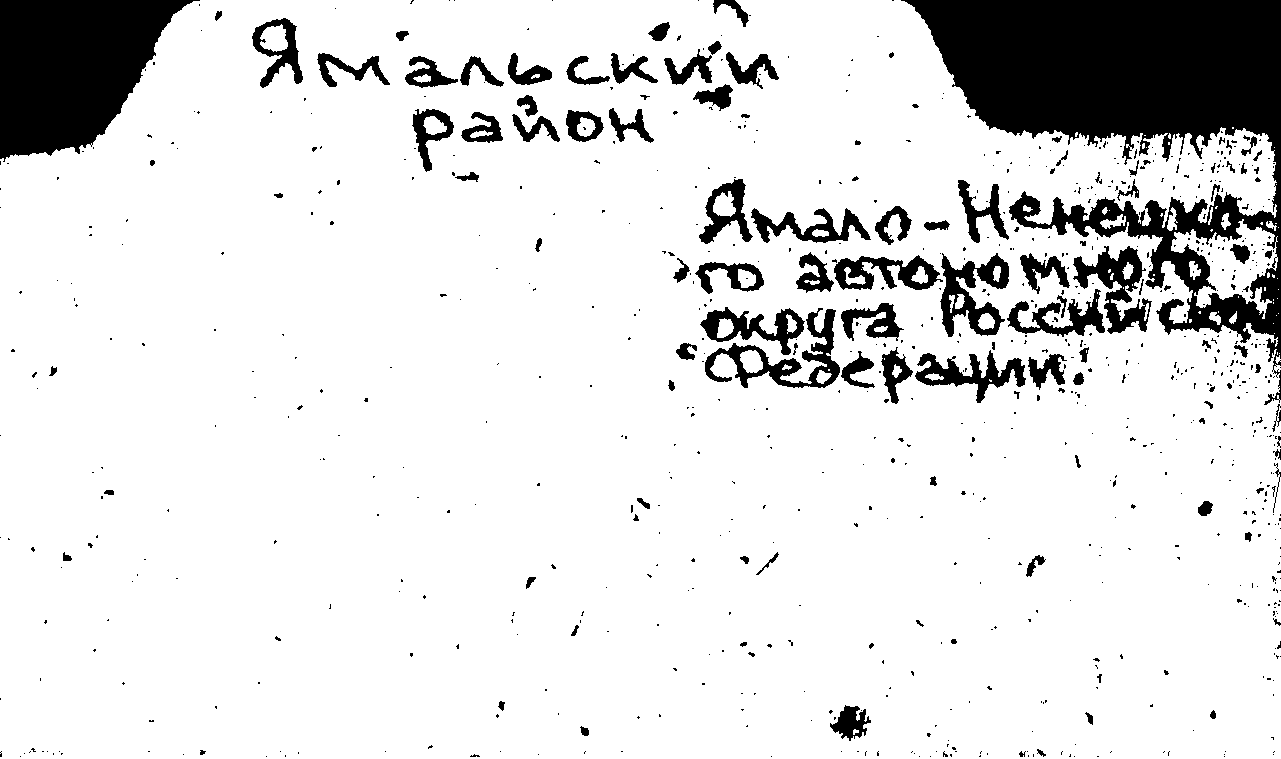 Ямальский
район
Ямало-Ненецко-
го автономного
округа Российской
Федерации.